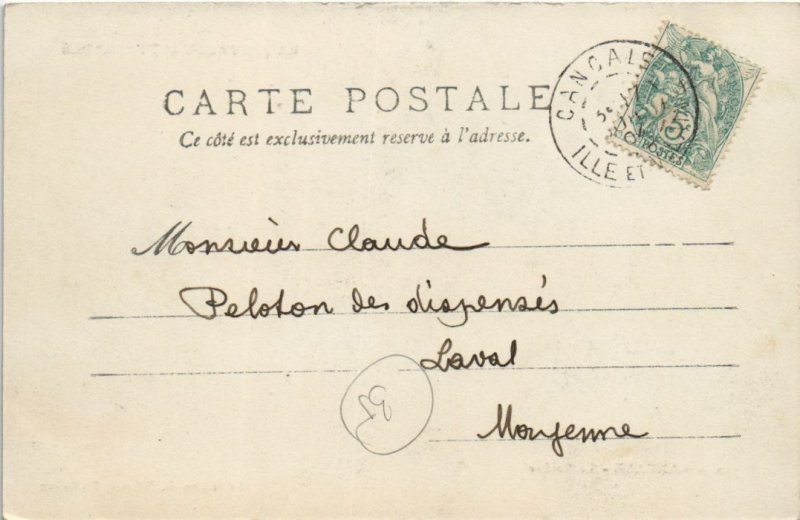 CARTE POSTALE
Ce côté est exclusivement reserve à l'adresse.
CANCALE
ILLE ET
5
POSTES
Monsieur Claude
Peloton des dispensés
Laval
Mayenne